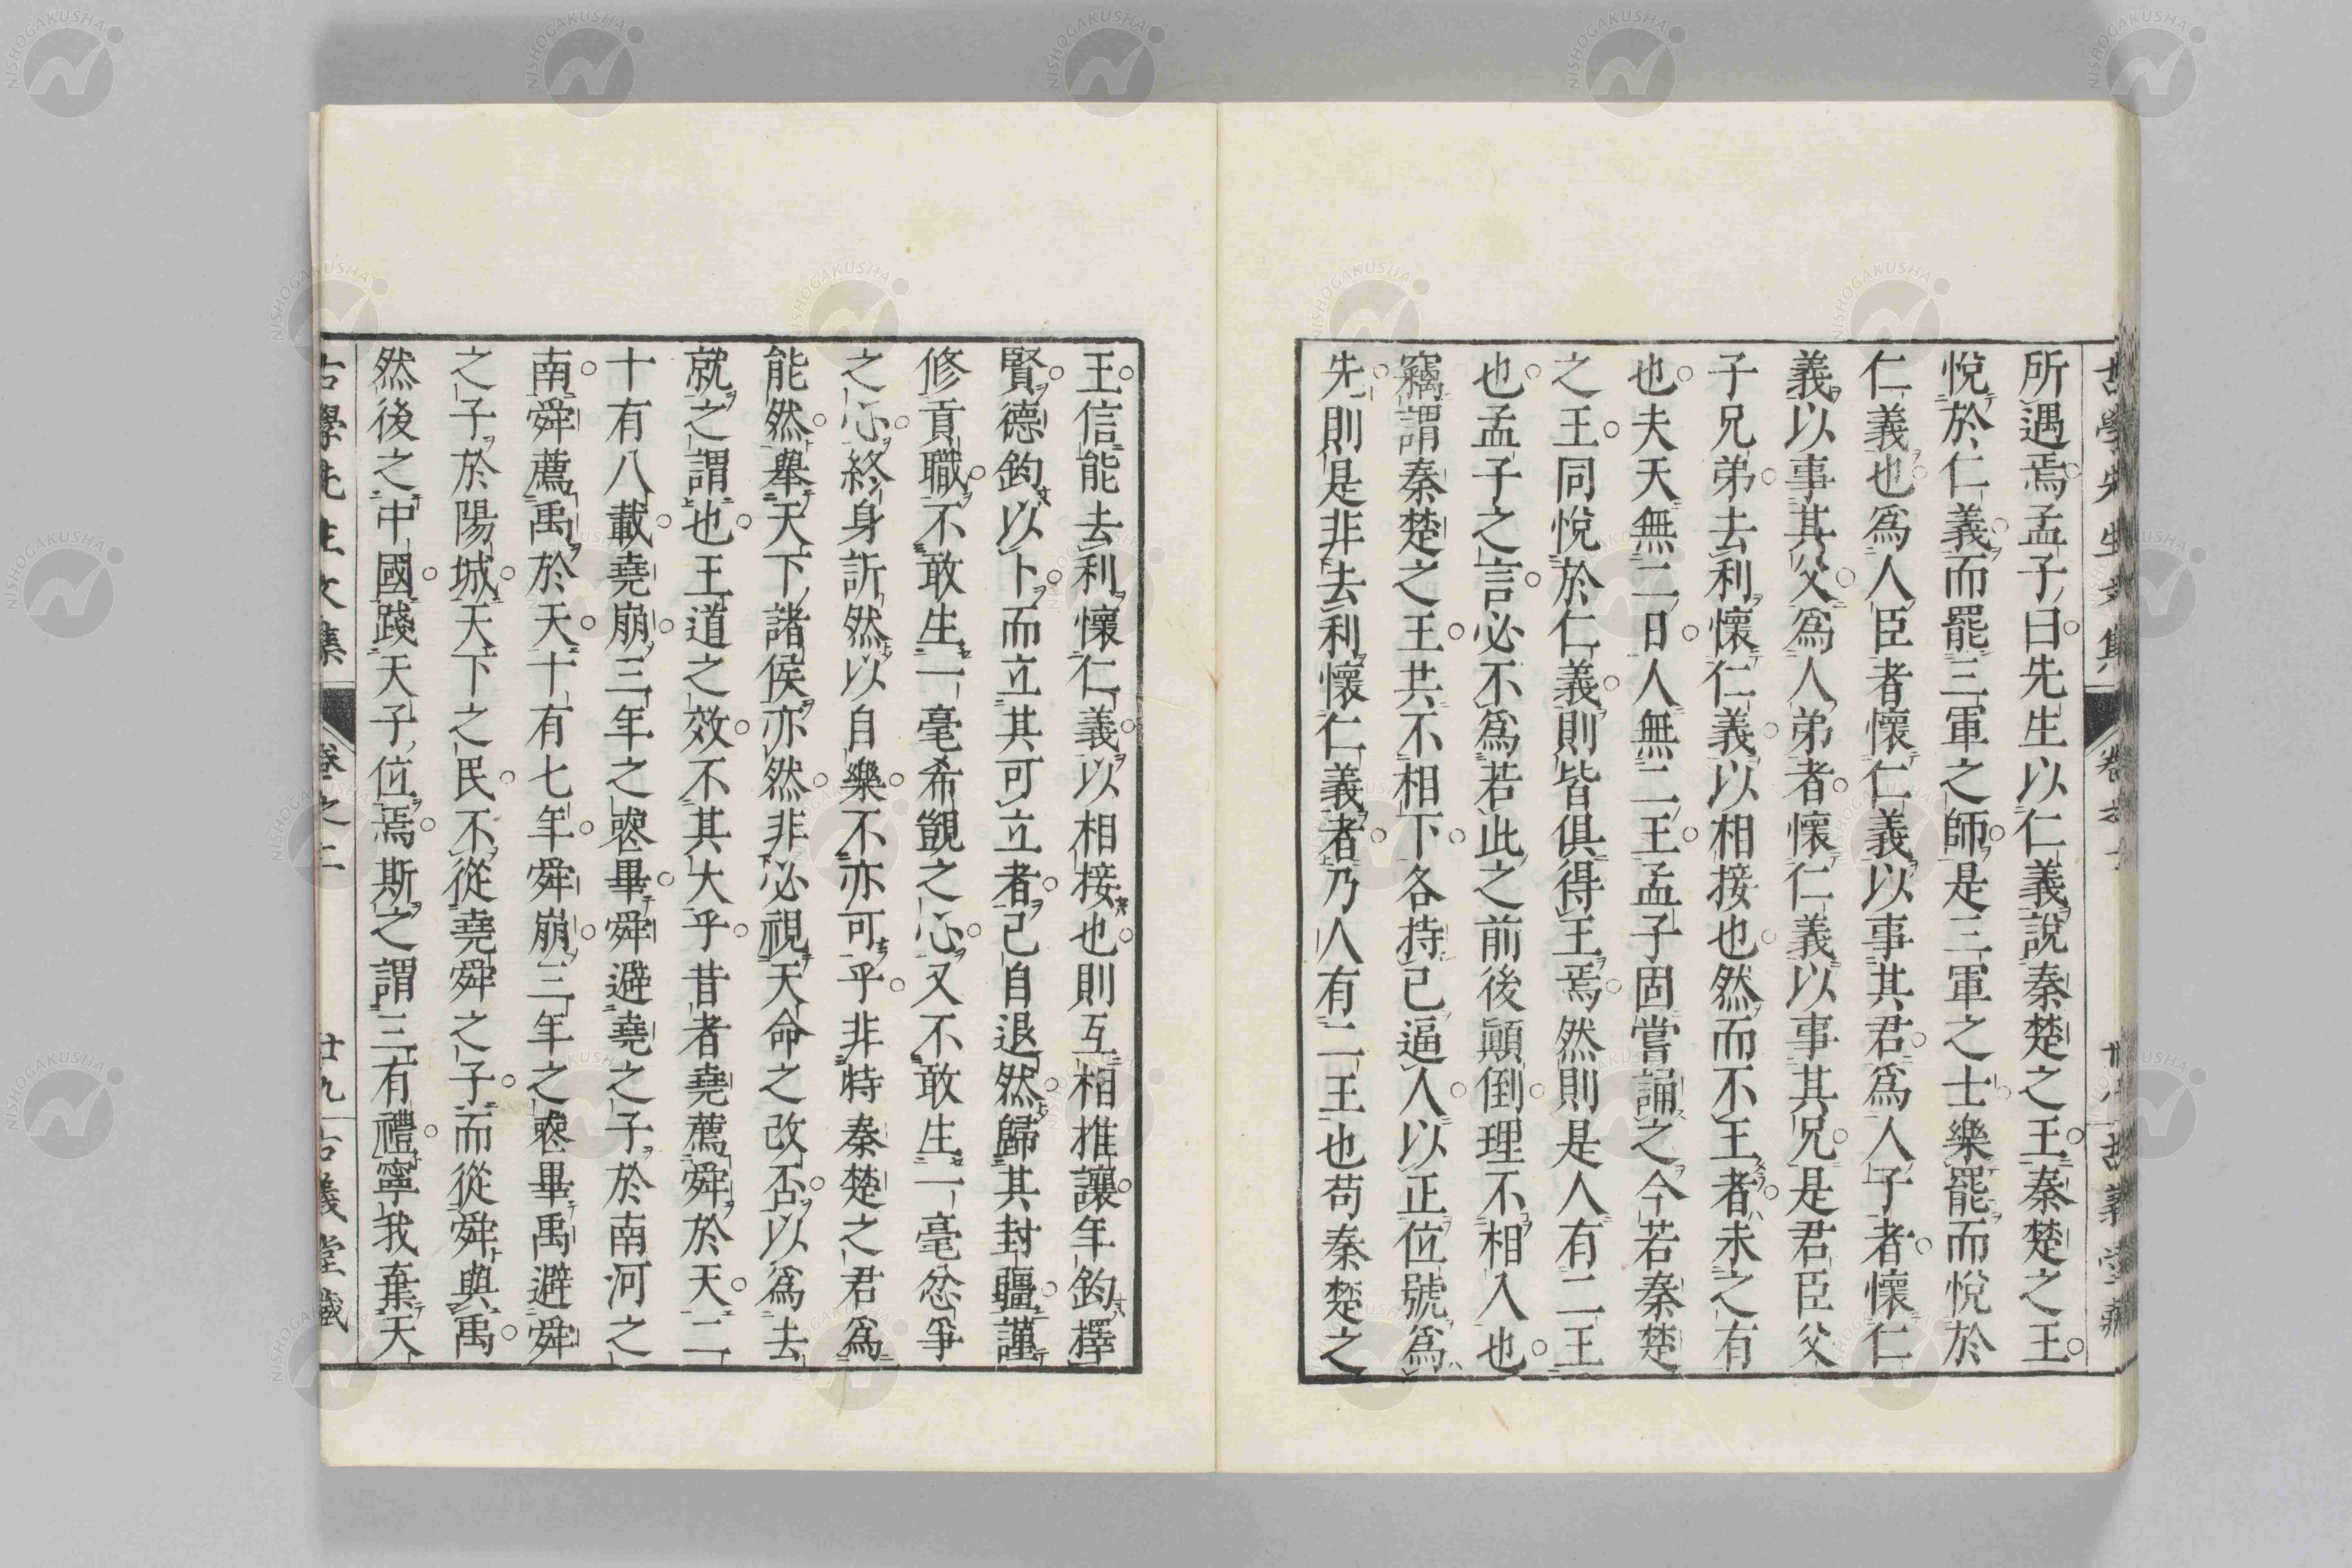 所遇焉孟子曰先生以仁義說秦楚之王秦楚之王
悅於仁義而罷三軍之師是三軍之士樂罷而悅於
仁義也爲人臣者懷仁義以事其君爲人子者懷仁
義以事其父爲人弟者懷仁義以事其兄是君臣父
子兄弟去利懷仁義以相接也然而不王者未之有
也夫天無二日人無二王孟子固嘗誦之今若秦楚
之王同悅於仁義則皆俱得王焉然則是人有二王
也孟子之言必不爲若此之前後顚倒理不相入也
竊謂秦楚之王共不相下各持己逼人以正位號爲
先則是非去利懷仁義者乃人有二王也苟秦楚之
王信能去利懷仁義以相接也則互相推讓年鈞擇
賢德鈞以卜而立其可立者己自退然歸其封疆謹
修貢職不敢生一毫希覬之心又不敢生一毫忿爭
之心終身訢然以自樂不亦可乎非特秦楚之君爲
能然舉天下諸侯亦然非必視天命之改否以爲去
就之謂也王道之效不其大乎昔者堯薦舜於天二
十有八載堯崩三年之喪畢舜避堯之子於南河之
南舜薦禹於天十有七年舜崩三年之喪畢禹避舜
之子於陽城天下之民不從堯舜之子而從舜與禹
然後之中國踐天子位焉斯之謂三有禮寧我棄天
古學先生文集 卷之二 廿九 古義堂藏